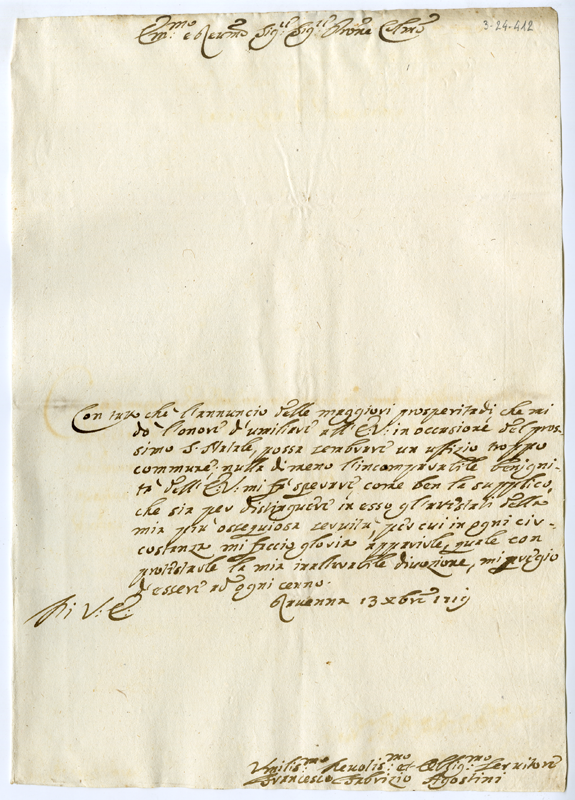 Em:mo e Reu:mo Sig:r Sig:r Pron:e Col:mo
3-24-412
Con tutto che l'annuncio delle maggiori prosperitadi che mi
dò l'onore d'umiliare all'E.V: in occasione del pros-
simo S. Natale, possa sembrare un uffizio troppo
commune: nulla di meno l'incomparabile benigni-
tà dell'E.V: mi fà sperare come ben la supplico,
che sia per distinguere in esso gl'attestati della
mia più ossequiosa servitù, per cui in ogni cir-
costanza mi faccio gloria apparirle, quale con
protestarle la mia inalterabile divozione, mi pregio
d'essere ad ogni cenno.
Di V: E:
Ravenna 13 Xbre 1719
Umilis:mo Devotis:mo et Obblig:mo Servitore
Francesco Fabrizio Agostini